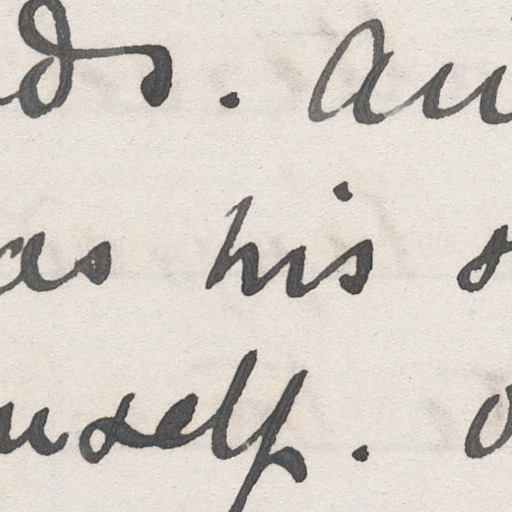 ds. an
as his s
mself. o